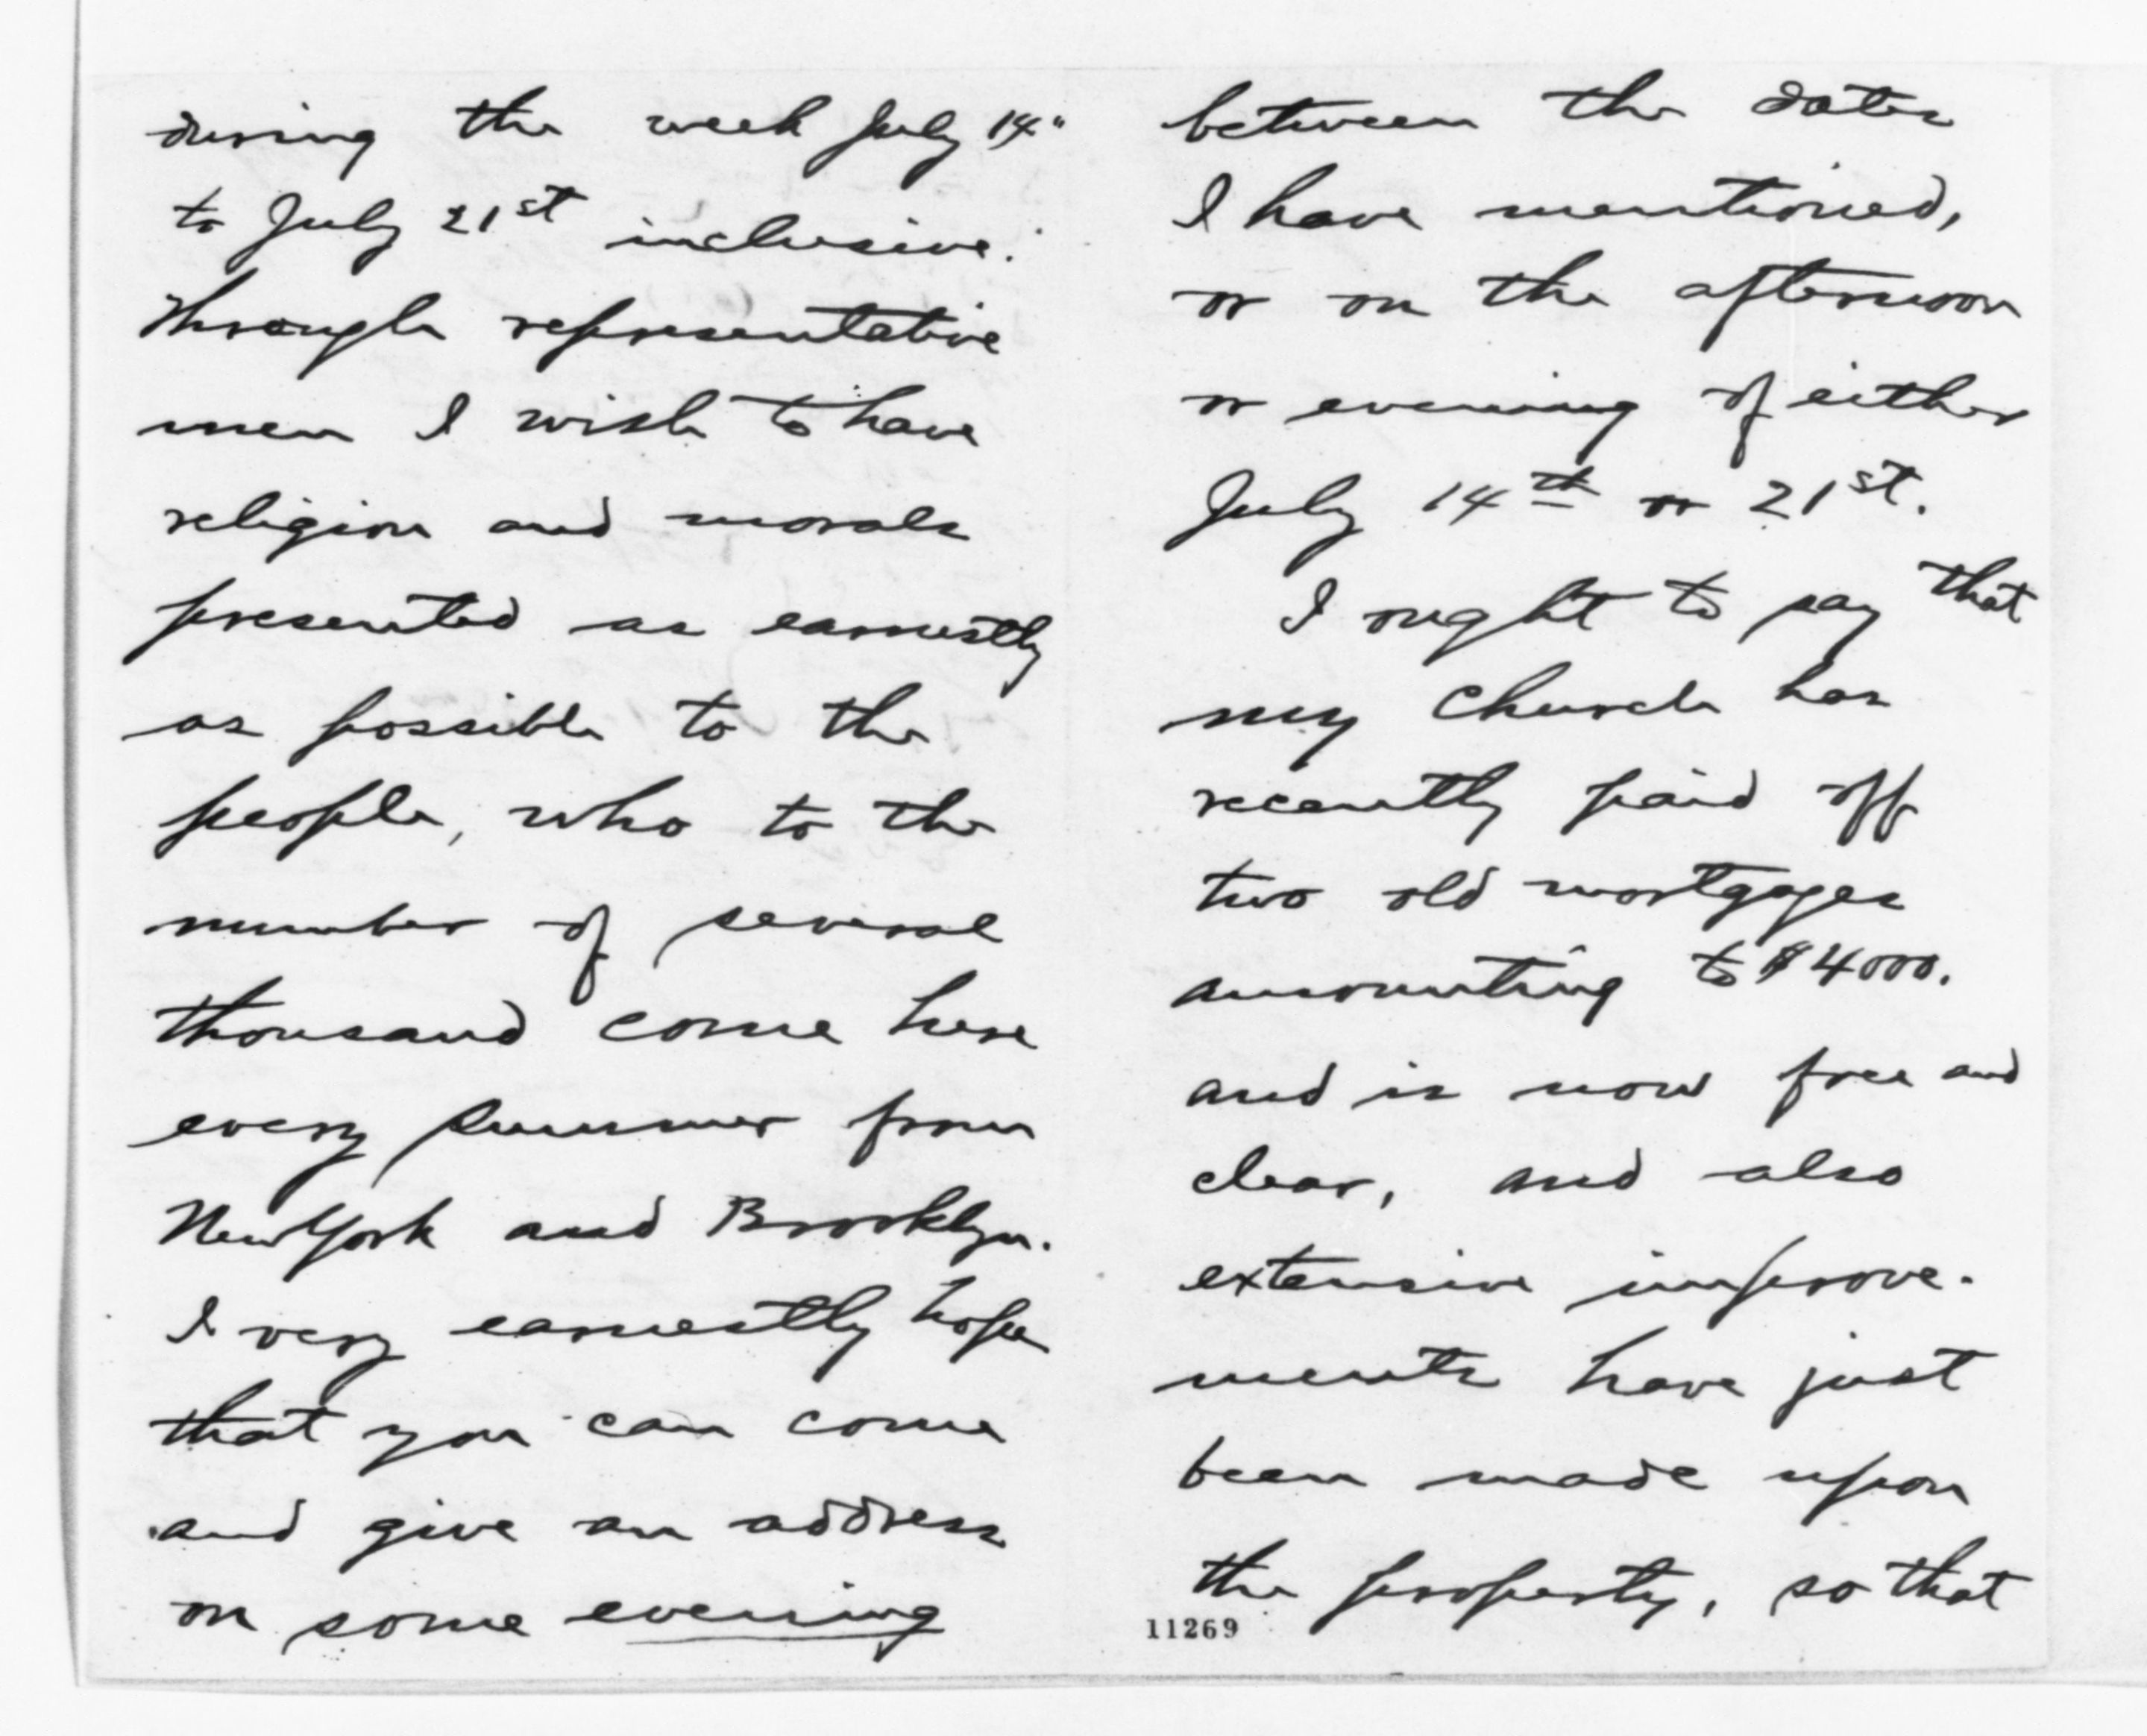 during the week July 14"
to July 21st inclusive.
Through representative
men I wish to have
religion and morals
presented as earnestly
as possible to the
people, who to the
number of several
thousand come here
every summer from
New York and Brooklyn.
I very earnestly hope
that you can come
and give an address
on some evening
between the dates
I have mentioned,
or on the afternoon
or evening of either
July 14th or 21st.
I ought to say that
my church has
recently paid off
two old mortgages
amounting to $4000.
and is now free and
clear, and also
extensive improve-
ments have just
been made upon
the property, so that
11269